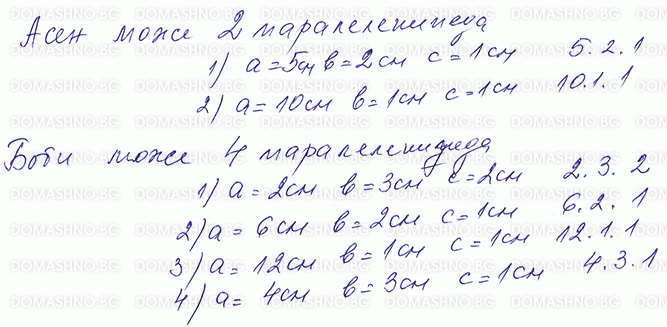 Асен може 2 паралелепипеда
1) a = 5см b = 2см c = 1см 5.2.1
2) a = 10см b = 1см c = 1см 10.1.1
Боби може 4 паралелепипеда
1) a = 2см b = 3см c = 2см 2.3.2
2) a = 6см b = 2см c = 1см 6.2.1
3) a = 12см b = 1см c = 1см 12.1.1
4) a = 4см b = 3см c = 1см 4.3.1